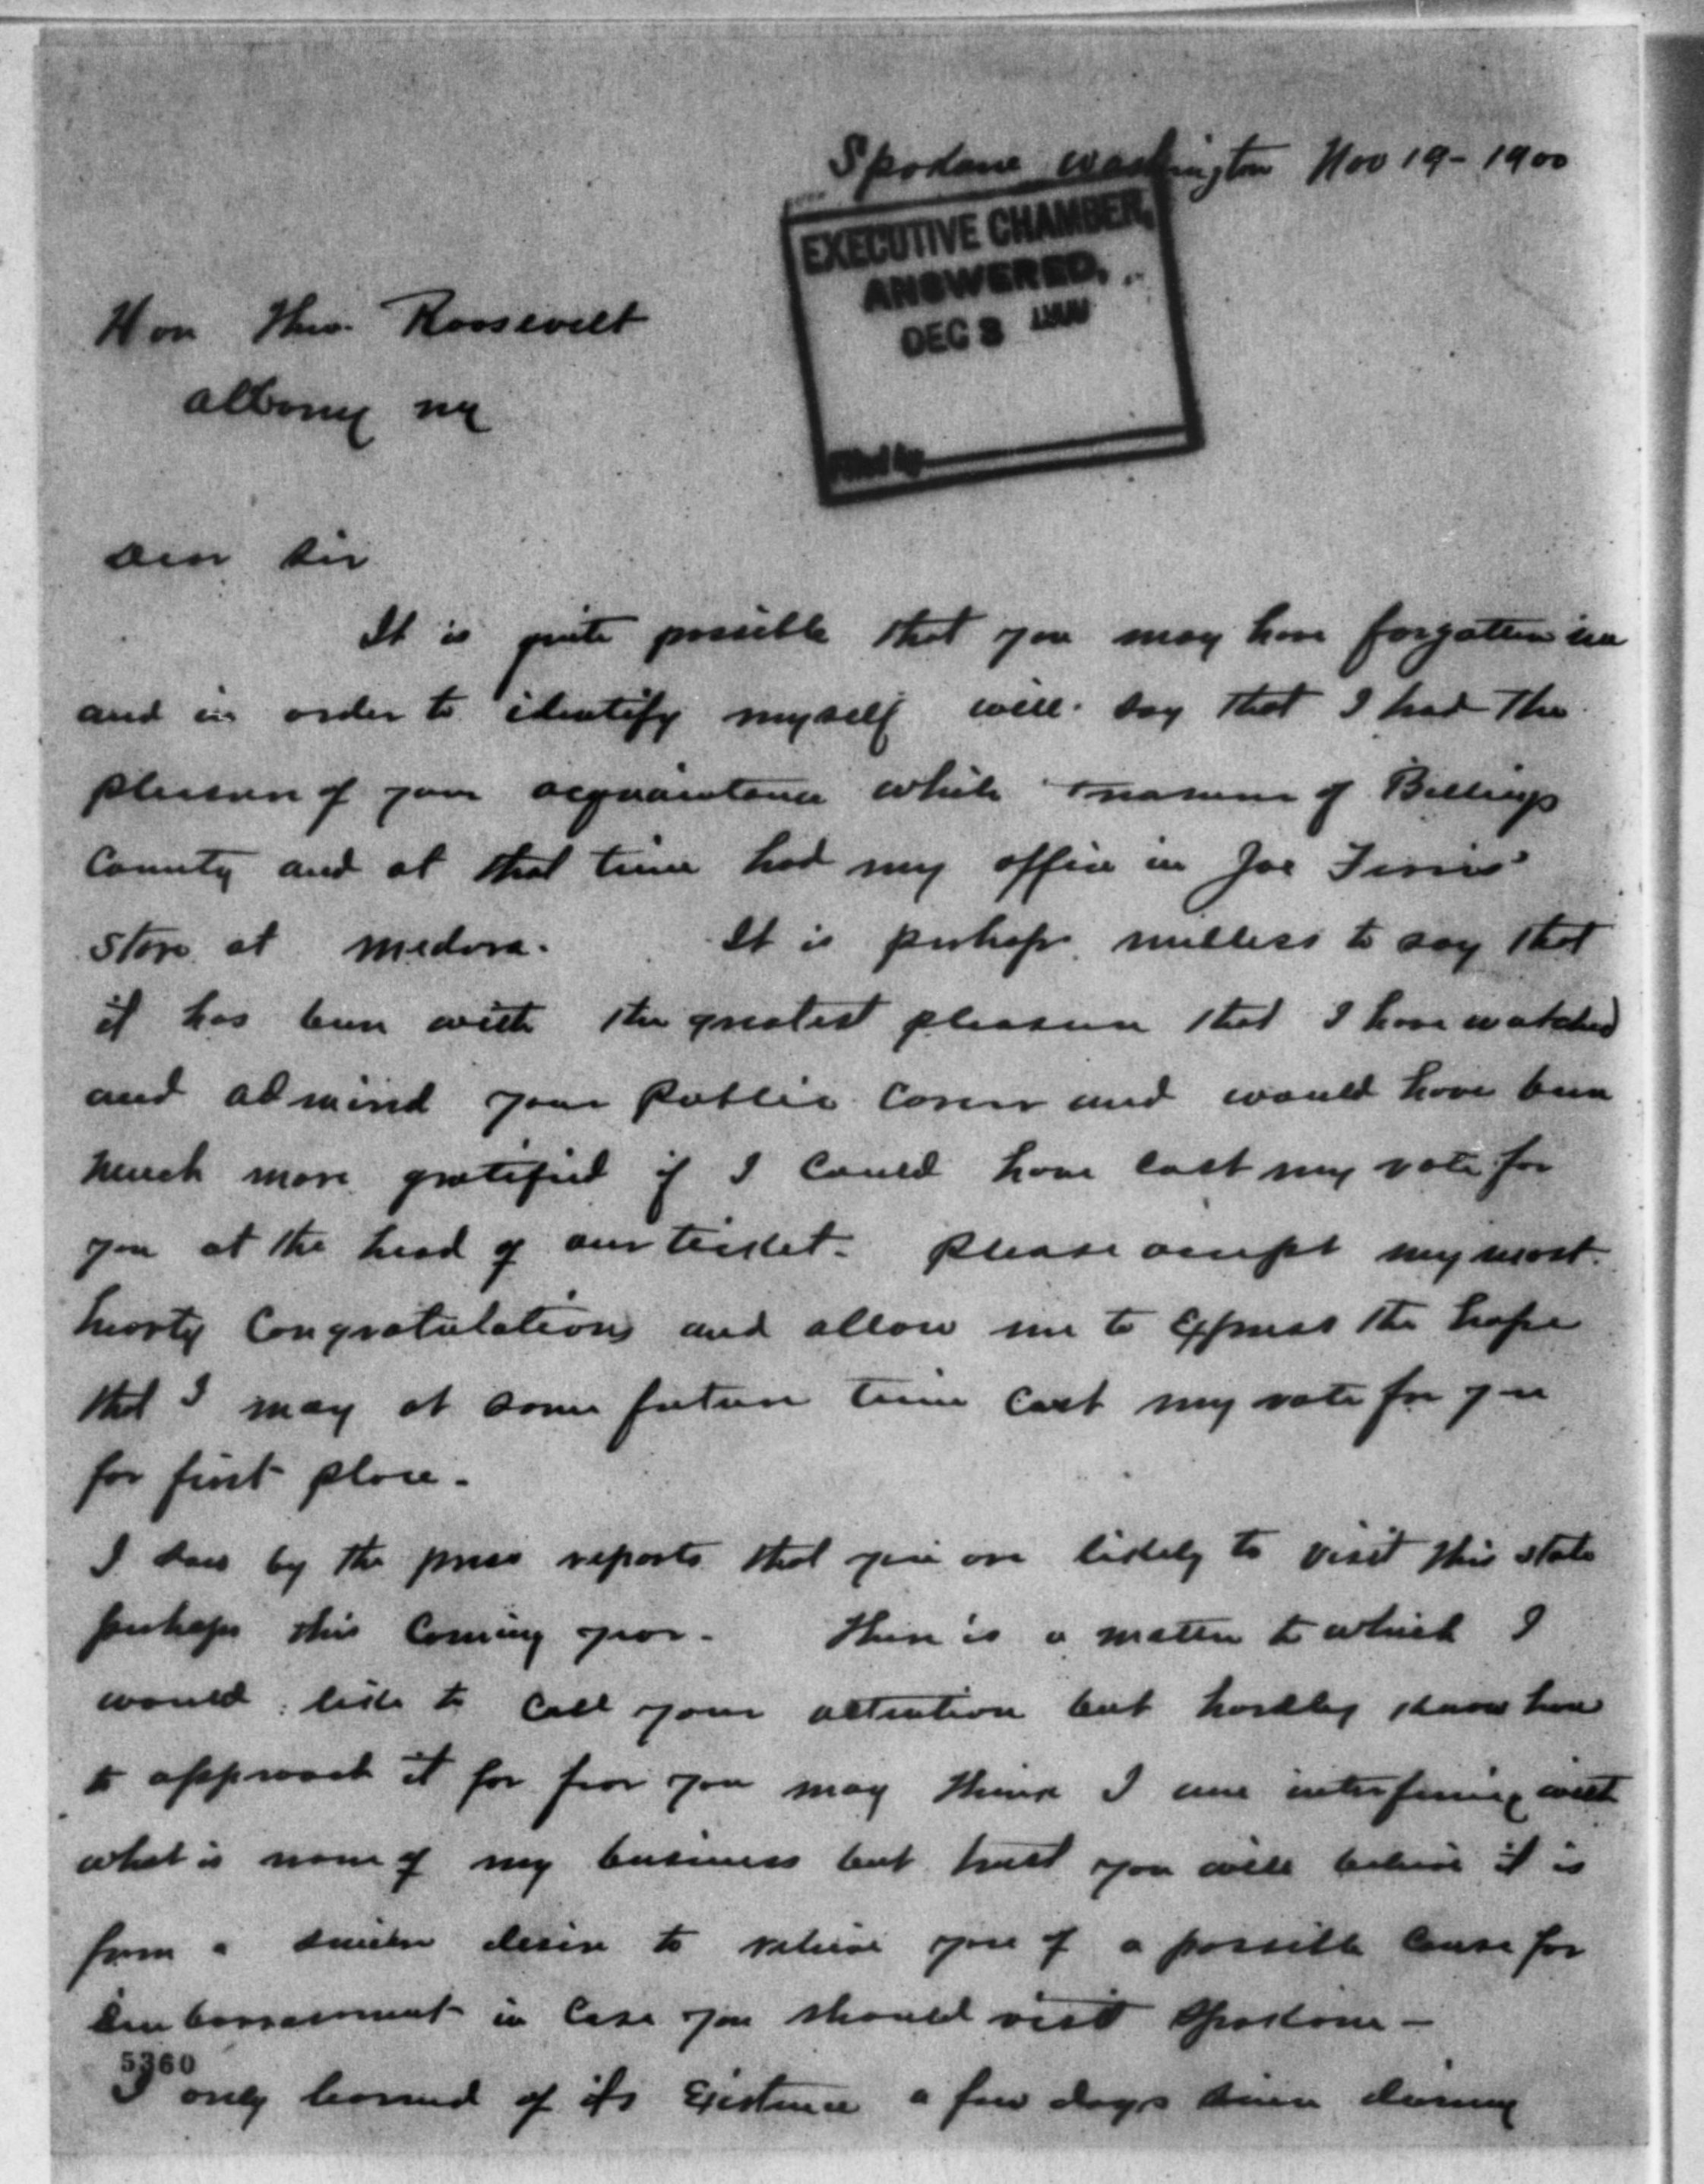 Spokane Washington Nov 19 - 1900
EXECUTIVE CHAMBER,
ANSWERED,
DEC 3
Filed by
Hon Theo. Roosevelt
Albany NY
Dear Sir
It is quite possible that you may have forgotten me
and in order to identify myself will say that I had the
pleasure of your acquaintance while Treasurer of Billings
County and at that time had my office in Joe Ferris'
Store at Medora. It is perhaps needless to say that
it has been with the greatest pleasure that I have watched
and admired your public career and would have been
much more gratified if I could have cast my vote for
you at the head of our ticket. Please accept my most
hearty Congratulations and allow me to Express the hope
that I may at some future time Cast my vote for you
for first place.
I saw by the press reports that you are likely to visit this state
perhaps this Coming year. There is a matter to which I
would like to Call your attention but hardly know how
to approach it for fear you may think I am interfering with
what is none of my business but trust you will believe it is
from a sincere desire to relieve you of a possible Cause for
Embarrassment in Case you should visit Spokane -
5360
I only learned of its Existence a few days since during